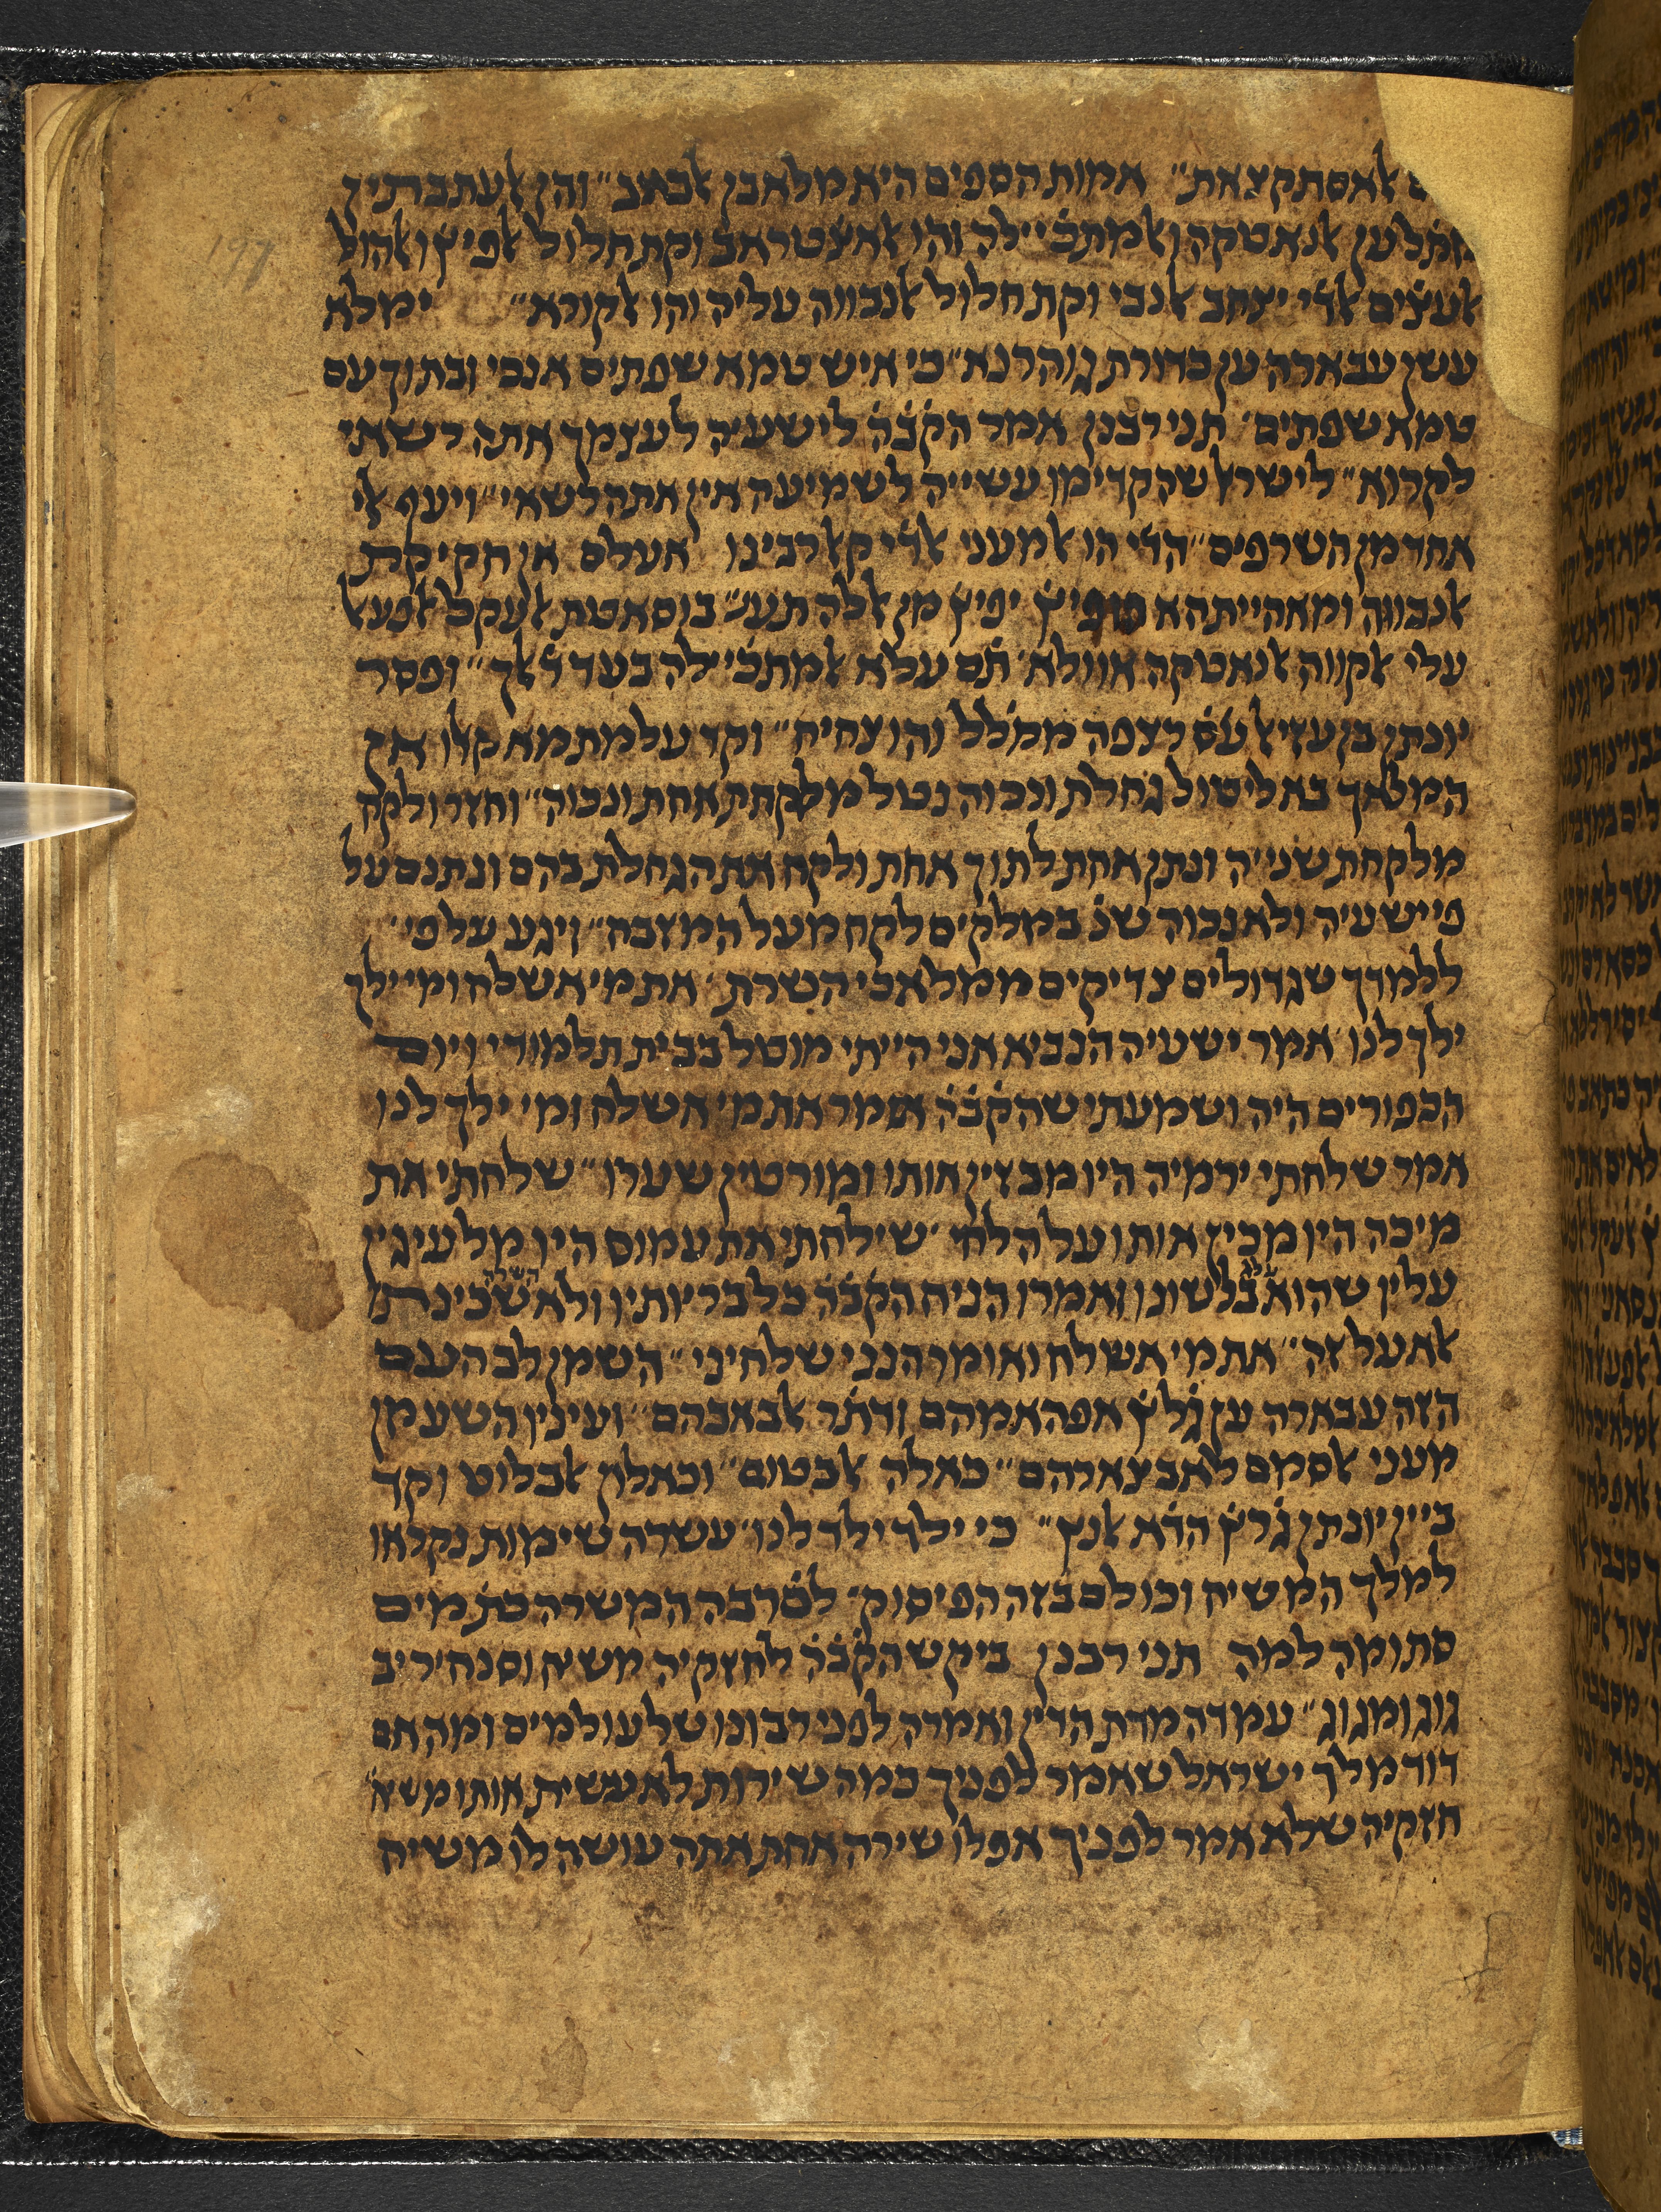 אלאסתקצאת״ אמות הספים היא מלאבן אלבאב״ והן אלעתבתין
מתׄל ען אלנאטקה ואלמתכׄיילה והו אלאצׄטראב וקת חלול אלפיץׄ ואלהול
אלעצׄים אלדׄי יצחב אלנבי וקת חלול אלנבווה עליה והו אלקורא״ ימלא
עשן עבארה ען כדורת גוהרנא״ כי איש טמא שפתים אנכי ובתוך עם
טמא שפתים׳ תני רבנן אמר הקׄבׄהׄ לישעיה לעצמך אתה רשאי
לקרוא״ לישראל שהקדימו עשייה לשמיעה אין אתה רשאי״ ויעף אלי
אחד מן השרפים״ הדׄי הו אלמעני אלדׄי קאל רבינו אעלם אן חקיקת
אלנבווה ומאהייתהא פיץׄ יפיץׄ מן אללה תעׄ״ בוסאטת אלעקל אלפעאל
עלי אלקווה אלנאטקה אוולא׳ תׄם עלא אלמתכׄיילה בעד דׄאלך״ ופסר
יונתן בן עזיאל עׄסׄ רצפה ממלל והו צחיח״ וקד עלמת מא קאלו אין
המלאך בא ליטול גחלת ונכוה נטל מלקחת אחת ונכוה״ וחזר ולקח
מלקחת שנייה ונתן אחת לתוך אחת ולקח את הגחלת בהם ונתנם על
פי ישעיה ולא נכוה שנׄ במלקים לקח מעל המזבח״ ויגע על פי׳
ללמדך שגדולים צדיקים ממלאכי השרת׳ את מי אשלח ומי ילך
ילך לנו׳ אמר ישעיה הנביא אני הייתי מוטל בבית תלמודי ויום
הכפורים היה ושמעתי שהקׄבׄהׄ אומר את מי אשלח ומי ילך לנו
אמר שלחתי ירמיה היו מבצין אותו ומורטין שערו״ שלחתי את
מיכה היו מכין אותו על הלחי׳ שילחתי את עמוס היו מלעיגין
עליו שהוא בלשונו ואמרו הניח הקׄבׄהׄ כל בריותיו ולא שכינתו
אלא על זה״ את מי אשלח ואומר הנני שלחיני״ השמן לב העם
הזה עבארה ען גׄלץׄ אפהאמהם ודתׄר אלבאבהם״ ועיניו השע מן
מעני אלסמם לאבצארהם״ כאלה אלבטום״ וכאלון אלבלוט וקד
ביין יונתן גׄרץׄ הדׄא אלנץ״ כי ילד ילד לנו׳ עשרה שימות נקראו
למלך המשיח וכולם בזה הפיסוק׳ לםרבה המשרה כתׄ מים
סתומה למה תני רבנן ביקש הקׄבׄהׄ לחזקיה משיח וסנחיריב
גוג ומגוג״ עמדה מדת הדין ואמרה לפניו רבונו של עולמים ומה אם
דוד מלך ישראל שאמר לפניך כמה שירות לא עשית אותו משיח
חזקיה שלא אמר לפניך אפלו שירה אחת אתה עושה לו משיח